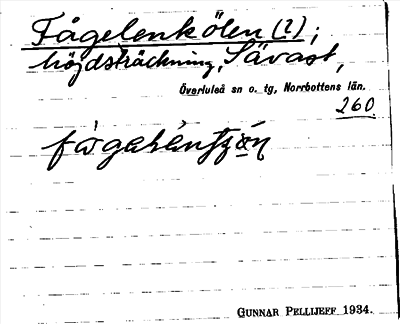 Fågelenkölen (?);
höjdsträckning, Sävast,
Överluleå sn o. tg, Norrbottens län.
260
GUNNAR PELLIJEFF 1934.